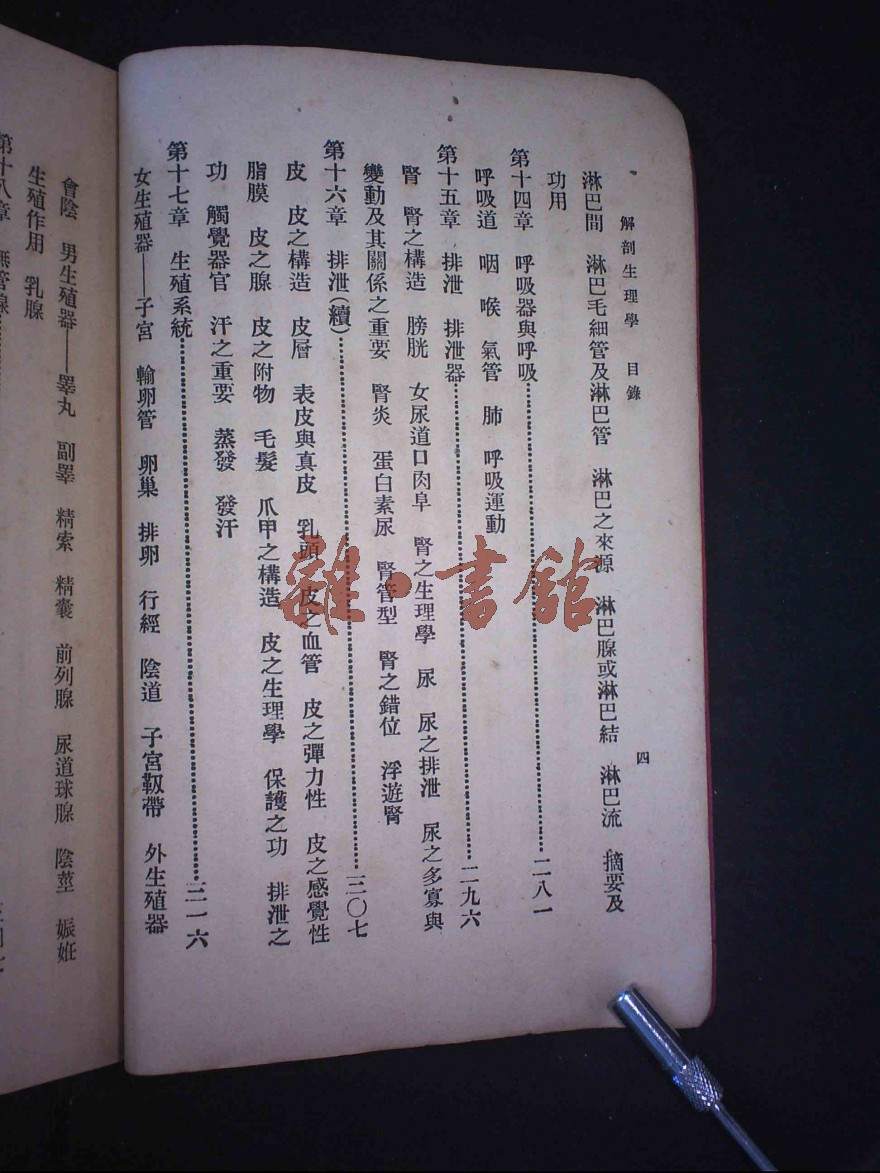 解剖生理學 目錄 四
淋巴間 淋巴毛細管及淋巴管 淋巴之來源 淋巴腺或淋巴結 淋巴流 摘要及
功用
第十四章 呼吸器與呼吸……二八一
呼吸道 咽 喉 氣管 肺 呼吸運動
第十五章 排泄 排泄器……二九六
腎 腎之構造 膀胱 女尿道口肉阜 腎之生理學 尿 尿之排泄 尿之多寡與
變動及其關係之重要 腎炎 蛋白素尿 腎管型 腎之錯位 浮遊腎
第十六章 排泄(續)……三〇七
皮 皮之構造 皮層 表皮與真皮 乳頭 皮之血管 皮之彈力性 皮之感覺性
脂膜 皮之腺 皮之附物 毛髮 爪甲之構造 皮之生理學 保護之功 排泄之
功 觸覺器官 汗之重要 蒸發 發汗
第十七章 生殖系統……三一六
女生殖器——子宮 輸卵管 卵巢 排卵 行經 陰道 子宮靱帶 外生殖器
會陰 男生殖器——睪丸 副睪 精索 精囊 前列腺 尿道球腺 陰莖 娠姙
生殖作用 乳腺
第十八章 無管腺……
雜·書館